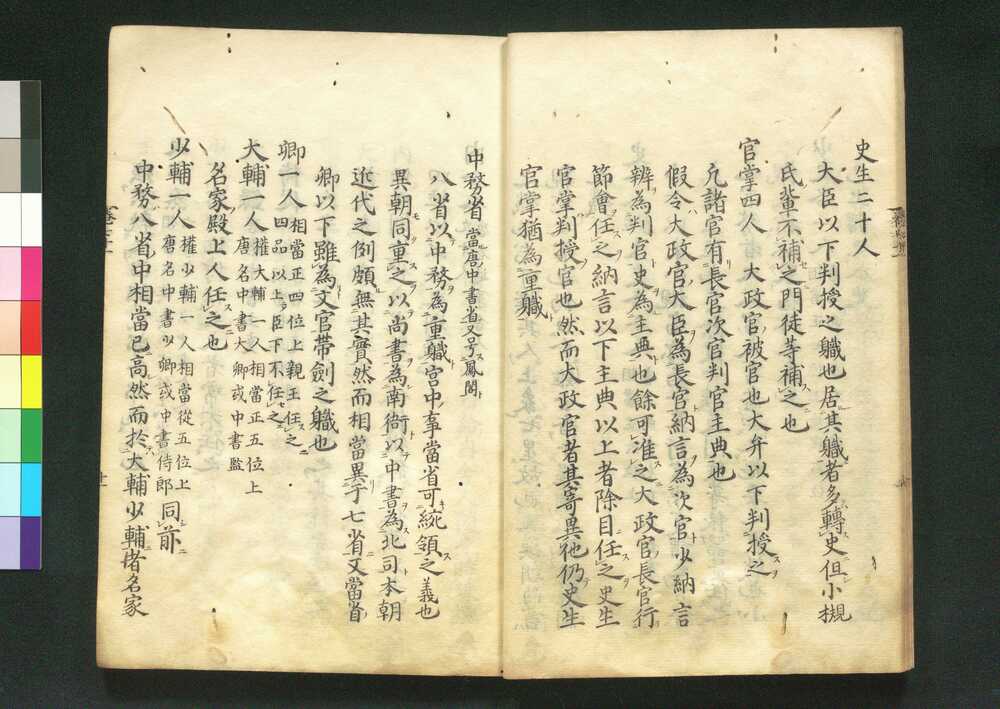 史生二十人
大臣以下判授之軄也居其軄者多轉史但小槻
氏輩不補之門徒等補之也
官掌四人 大政官被官也大弁以下判授之
凢諸官有長官次官判官主典也
假令大政官大臣為長官納言為次官少納言
辨為判官史為主典也餘可准之大政官長官行
節會任之納言以下主典以上者除目任之史生
官掌判授官也然而大政官者其寄異他仍史生
官掌猶為重軄
中務省 當唐中書省又号鳳閣
八省以中務為重軄宮中事當省可統領之義也
異朝同重之以尚書為南衙以中書為北司本朝
近代之例頗無其實然而相當異于七省又當省
卿以下雖為文官帶劍之軄也
卿一人 相當正四位上親王任之
四品以上臣下不任之
大輔一人 權大輔一人相當正五位上
唐名中書大卿或中書監
名家殿上人任之也
少輔一人 權少輔一人相當從五位上
唐名中書少卿或中書侍郎 同前
中務八省中相當已高然而於大輔少輔者名家